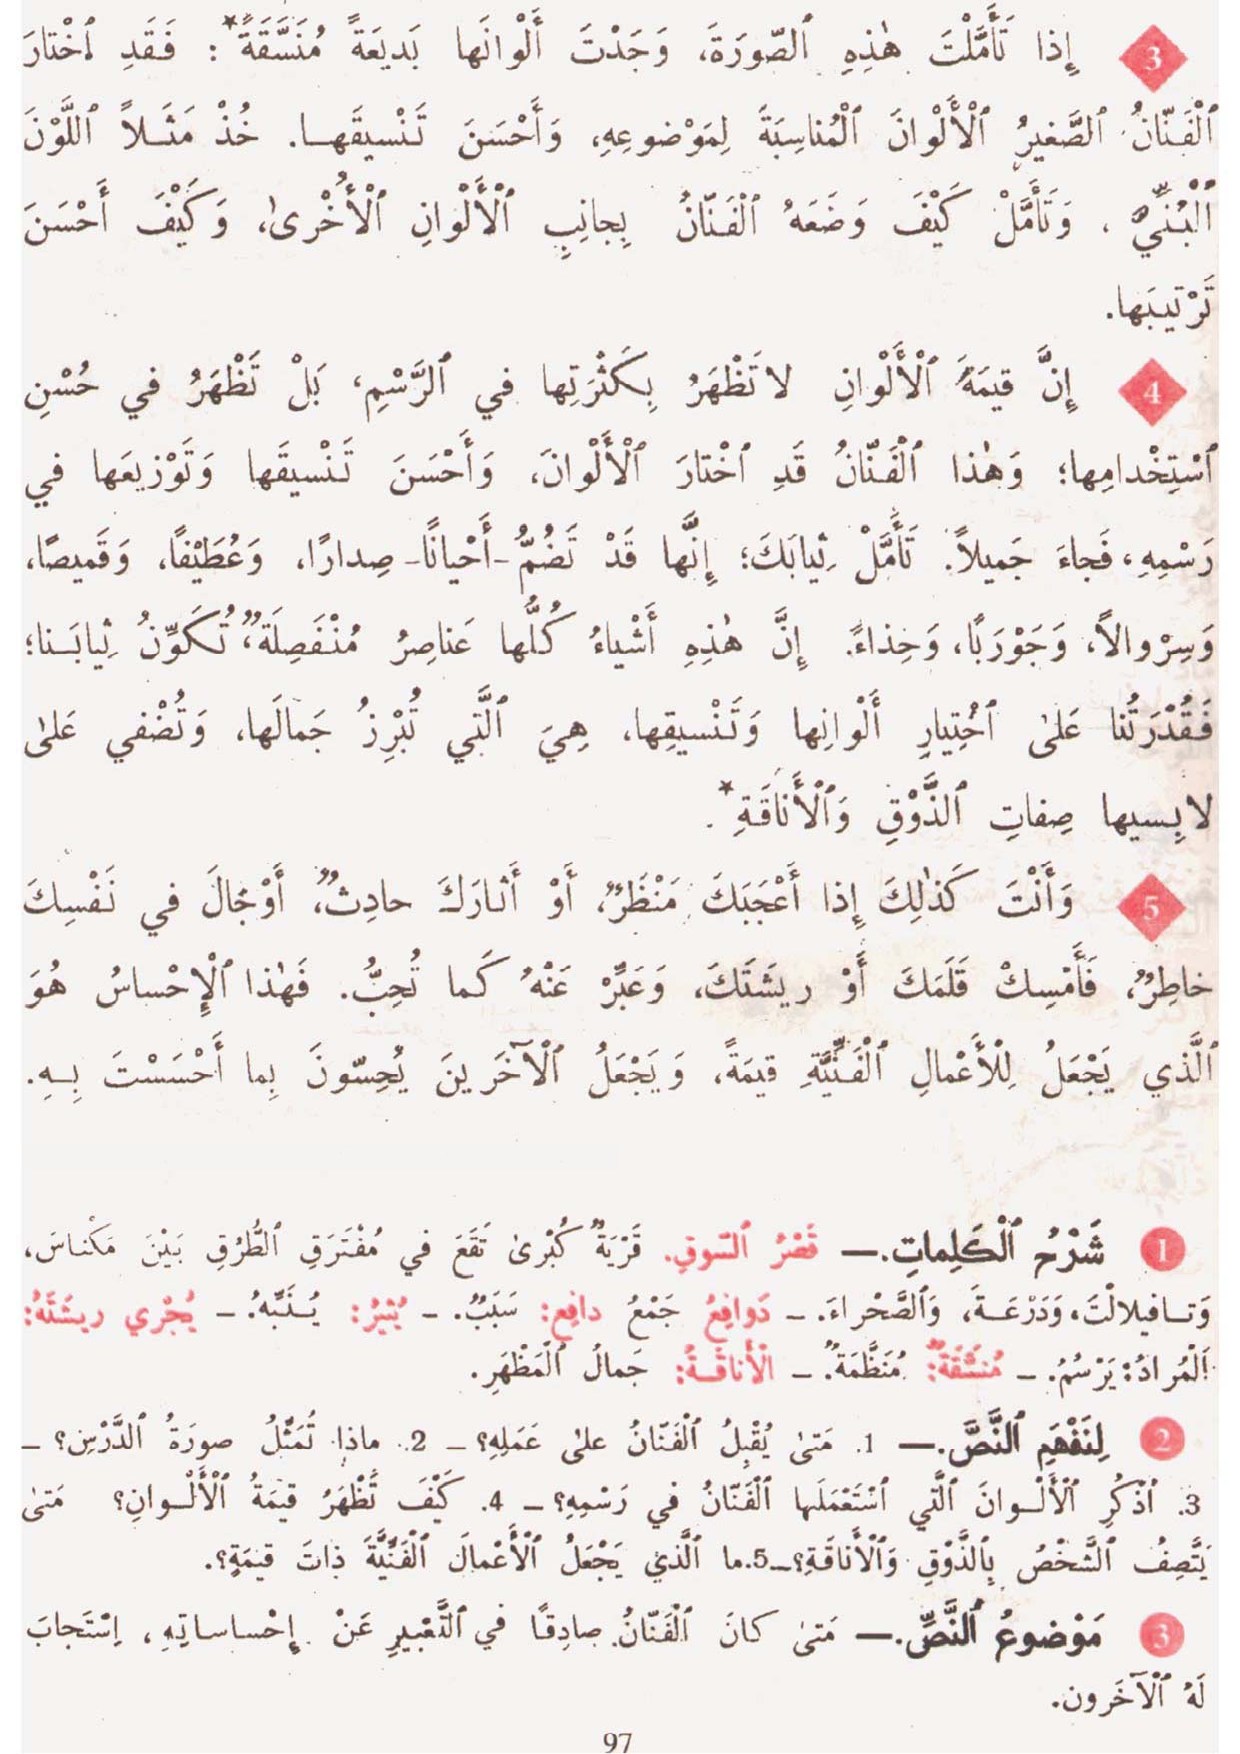 3 إِذا تَأَمَّلْتَ هٰذِهِ ٱلصّورَةَ، وَجَدْتَ أَلْوانَها بَديعَةً مُنَسَّقَةً* : فَقَدِ ٱخْتارَ
ٱلْفَنّانُ ٱلصَّغيرُ ٱلْأَلْوانَ ٱلْمُناسِبَةَ لِمَوْضوعِهِ، وَأَحْسَنَ تَنْسيقَهـا. خُذْ مَثَـلاً ٱللَّوْنَ
ٱلْبُنِّيَّ ، وَتَأَمَّلْ كَيْفَ وَضَعَهُ ٱلْفَنّانُ بِجانِبِ ٱلْأَلْوانِ ٱلْأُخْرىٰ، وَكَيْفَ أَحْسَنَ
تَرْتيبَها.
4 إِنَّ قيمَةَ ٱلْأَلْوانِ لا تَظْهَرُ بِكَثْرَتِها في ٱلرَّسْمِ، بَلْ تَظْهَرُ في حُسْنِ
ٱسْتِخْدامِها؛ وَهٰذا ٱلْفَنّانُ قَدِ ٱخْتارَ ٱلْأَلْوانَ، وَأَحْسَنَ تَنْسيقَها وَتَوْزيعَها في
رَسْمِهِ، فَجاءَ جَميلاً. تَأَمَّلْ ثِيابَكَ؛ إِنَّها قَدْ تَضُمُّ -أَحْيانًا- صِدارًا، وَعُطَيْفًا، وَقَميصًا،
وَسِرْوالاً، وَجَوْرَبًا، وَحِذاءً. إِنَّ هٰذِهِ أَشْياءُ كُلُّها عَناصِرُ مُنْفَصِلَةٌ، تُكَوِّنُ ثِيابَـنا؛
فَقُدْرَتُنا عَلىٰ ٱخْتِيارِ أَلْوانِها وَتَنْسيقِها، هِيَ ٱلَّتي تُبْرِزُ جَمالَها، وَتُضْفي عَلىٰ
لابِسيها صِفاتِ ٱلذَّوْقِ وَٱلْأَناقَةِ* .
5 وَأَنْتَ كَذٰلِكَ إِذا أَعْجَبَكَ مَنْظَرٌ، أَوْ أَثارَكَ حادِثٌ، أَوْ جالَ في نَفْسِكَ
خاطِرٌ، فَأَمْسِكْ قَلَمَكَ أَوْ ريشَتَكَ، وَعَبِّرْ عَنْهُ كَما تُحِبُّ. فَهٰذا ٱلْإِحْساسُ هُوَ
ٱلَّذي يَجْعَلُ لِلْأَعْمالِ ٱلْفَنِّيَّةِ قيمَةً، وَيَجْعَلُ ٱلْآخَرينَ يُحِسّونَ بِما أَحْسَسْتَ بِـهِ.
1 شَرْحُ ٱلْكَلِماتِ.— قَصْرُ ٱلسّوقِ. قَرْيَةٌ كُبْرىٰ تَقَعُ في مُفْتَرَقِ ٱلطُّرُقِ بَيْنَ مَكْناسَ،
وَتـافيلالْتَ، وَدَرْعَـةَ، وَٱلصَّحْراءَ. – دَوافِعُ جَمْعُ دافِعٍ: سَبَبٌ. – يُثيرُ: يُـنَبِّهُ. – يُجْري ريشَتَهُ:
ٱلْمُرادُ: يَرْسُمُ. – مُنَسَّقَةٌ: مُنَظَّمَةٌ. – ٱلْأَناقَـةُ: جَمالُ ٱلْمَظْهَرِ.
2 لِنَفْهَمِ ٱلنَّصَّ.— 1. مَتىٰ يُقْبِلُ ٱلْفَنّانُ عَلىٰ عَمَلِهِ؟ – 2. ماذا تُمَثِّلُ صورَةُ ٱلدَّرْسِ؟ –
3. ٱذْكُرِ ٱلْأَلْـوانَ ٱلَّتي ٱسْتَعْمَلَها ٱلْفَنّانُ في رَسْمِهِ؟ – 4. كَيْفَ تَظْهَرُ قيمَةُ ٱلْأَلْـوانِ؟ مَتىٰ
يَتَّصِفُ ٱلشَّخْصُ بِٱلذَّوْقِ وَٱلْأَناقَةِ؟ – 5. ما ٱلَّذي يَجْعَلُ ٱلْأَعْمالَ ٱلْفَنِّيَّةَ ذاتَ قيمَةٍ؟.
3 مَوْضوعُ ٱلنَّصِّ.— مَتىٰ كانَ ٱلْفَنّانُ صادِقًا في ٱلتَّعْبيرِ عَنْ إِحْساساتِهِ، اِسْتَجابَ
لَهُ ٱلْآخَرون.
97